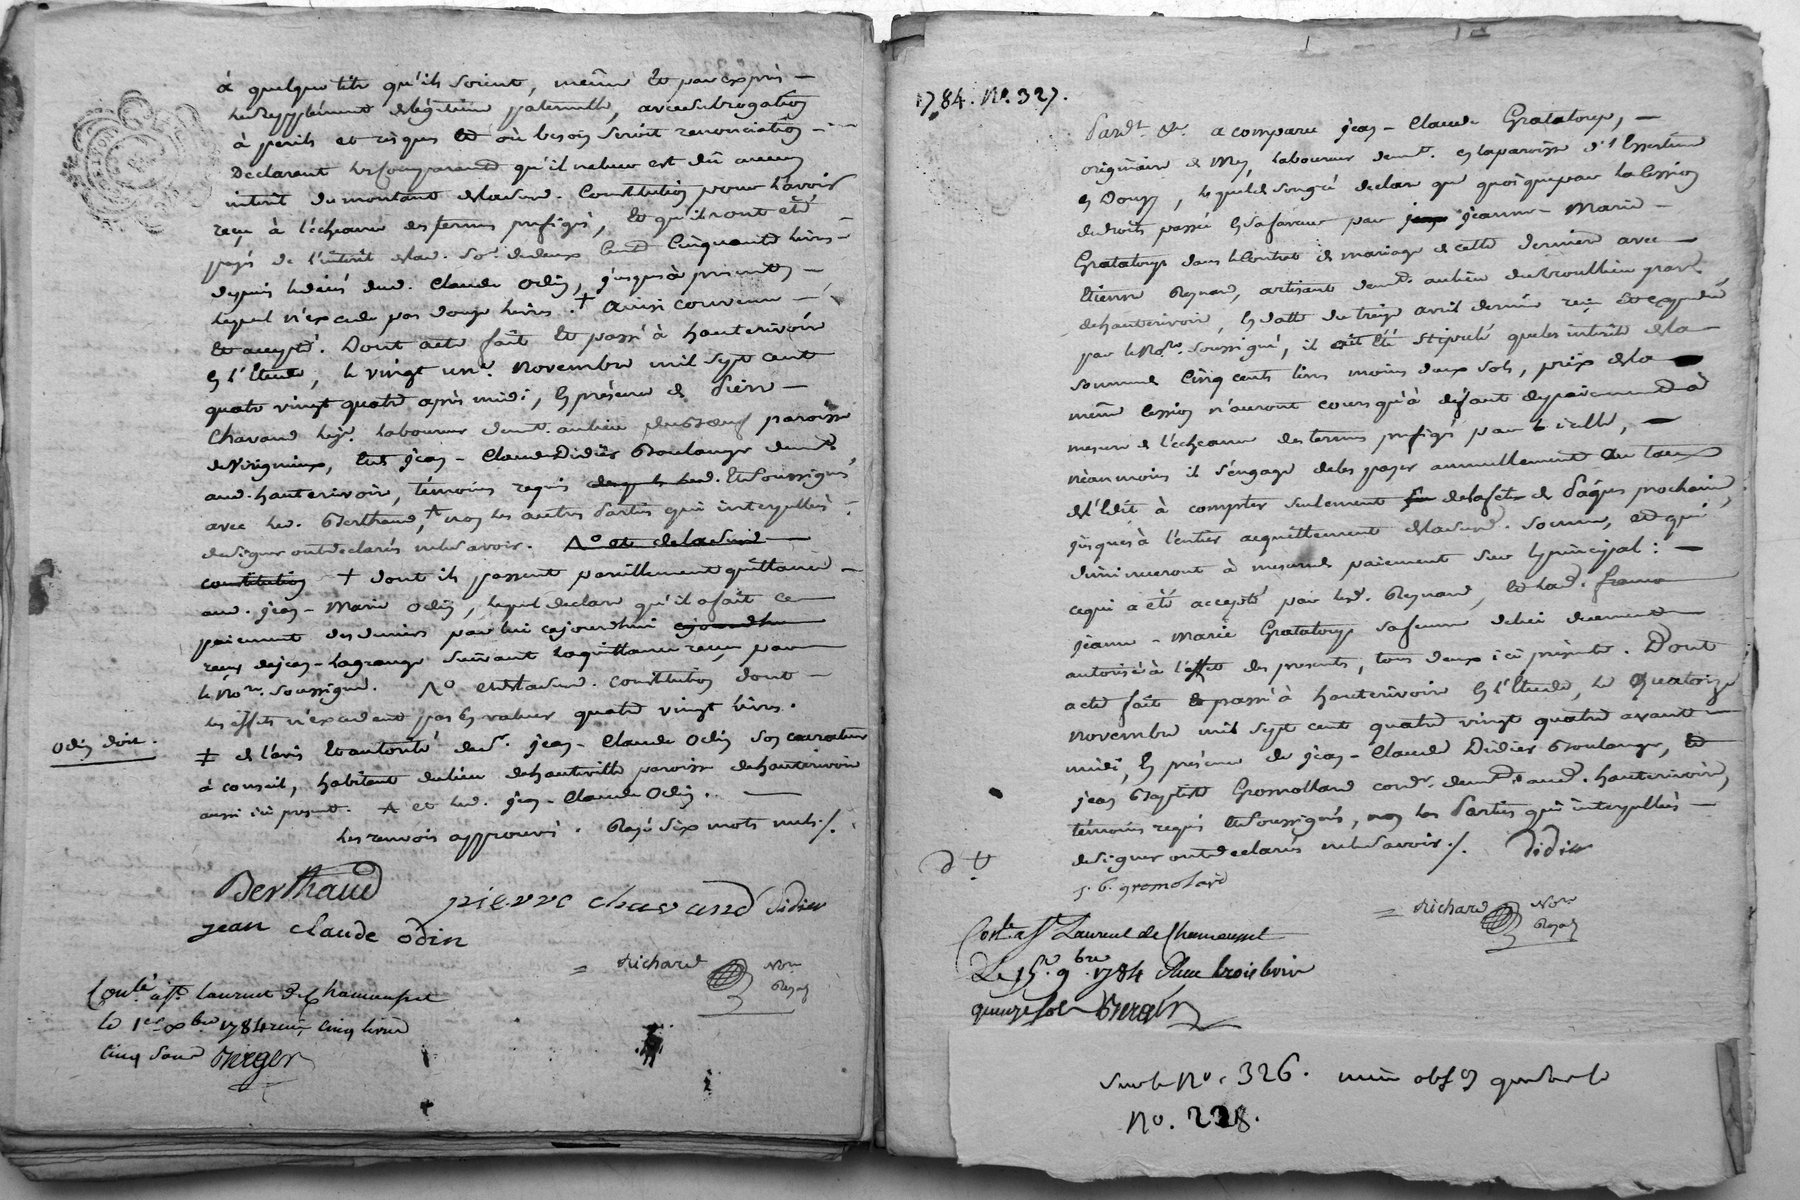 à quelque titre qu'ils soient, même et par exprès
le supplément de légitime paternelle, avec subrogation
à périls et risques et où besoin seroit renonciation
Déclarant les comparants qu'il ne leur est dû aucun
intérêt du montant de lad. Constitution pour l'avoir
reçu à l'échéance des termes préfigés, et qu'ils ont été
payés de l'intérêt de lad. So. de deux Cent Cinquante livres
depuis le décès dud. Claude Odin, jusques à présent,
lequel n'excede pas douze livres. + Ainsi convenu
et accepté. Dont acte fait et passé à hauterivoire
en l'Etude, le vingt un. Novembre mil sept cent
quatre vingt quatre après midi, en présence de Pierre
Chavand laboureur demt. au lieu
paroisse
de Virigneux, et Jean-Claude Didier Boulanger demt.
aud. hauterivoire, témoins requis et soussignés
avec led. Berthaud, non les autres Parties qui interpellées
de signer ont déclarés ne le savoir. No et de lad.
constitution + dont ils passent pareillement quittance
aud. Jean-Marie Odin, lequel déclare qu'il a fait ce
paiement des deniers par lui cejourdhui
reçus de Jean-Lagrange suivant la quittance reçue par
le Nore. soussigné. No et de lad. constitution dont
les effets n'excedent pas en valeur quatre vingt livres.
Odin doit.
‡ de l'avis et autorité de sr. Jean-Claude Odin son curateur
à conseil, habitant du lieu de hauteville paroisse de hauterivoire
aussi ici présent. et led. Jean-Claude Odin.
les renvois approuvés. Rayé six mots nuls ./.
Berthaud pierre chavand Didier
jean claude odin
= Richard Nore Royal
Conlé à St. Laurent de Chamousset
le 1er xbre 1784 reçu cinq livres
cinq sous Berger
1784. No. 327.
Pardt. &c. a comparu Jean-Claude Grataloup,
originaire de Meys, laboureur demt. en la paroisse d'Essertine
en Donzy, lequel de son gré declare que quoique par la Cession
de droits passée en sa faveur par Jeanne-Marie
Grataloup dans le Contrat de mariage de cette dernière avec
Etienne Reynard, artisant demt. au lieu
de hauterivoire, en datte du treize avril dernier reçu et expédié
par le Nore. soussigné, il ait été stipulé que les intérêts de la
somme de Cinq cents livres moins deux sols, prix de la
même cession n'auront cours qu'à défaut de paiement à
mesure de l'échéance des termes préfigés par icelle,
néanmoins il s'engage de les payer annuellement au taux
de l'Edit à compter seulement de la fête de Pâques prochaine,
jusques à l'entier acquittement de lad. somme, et qui
diminueront à mesure de paiement sur le principal:
ce qui a été accepté par led. Reynard, et lad.
Jeanne-Marie Grataloup sa femme de lui duement
autorisée à l'effet des présentes, tous deux ici présents. Dont
acte fait et passé à hauterivoire en l'Etude, le Quatorze
novembre mil sept cent quatre vingt quatre avant
midi, en présence de Jean-Claude Didier Boulanger, et
Jean Baptiste Gromollard cordr. demts. aud. hauterivoire,
témoins requis et soussignés, non les Parties qui interpellées
de signer ont déclarés ne le savoir ./. Didier
j. b. gromolard
= Richard Nore Royal
Conlé à St. Laurent de Chamousset
Le 15. 9bre. 1784 Reçu trois livres
quinze sols Berger
No. 326.
No. 228.